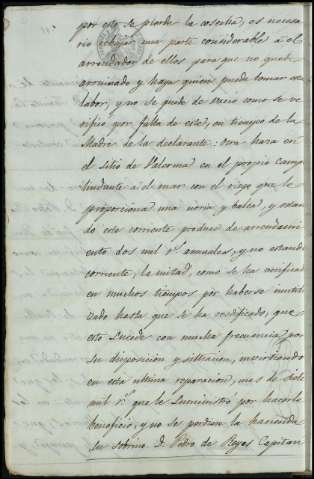 por eso se pierde la cosecha, es necesa-
rio rebajar una parte considerable á el
arrendador de ellos para que no quede
arruinado y haya quien pueda tomar esa
labor, y no se quede de vacio como se ve-
rificó por falta de este, en tiempo de la
Madre de la declarante: otra haza en
el sitio de Palerma en el propio campo
lindante á el mar con el riego que le
proporciona una noria y balsa, y estan-
do este corriente produce de arrendami-
ento dos mil r.s annuales, y no estando
corriente, la mitad, como se ha verificado
en muchos tiempos por haberse inutili-
zado hasta que se ha reedificado, que
esto sucede con mucha frecuencia por
su disposicion y situacion, invirtiendo
en esta ultima reparacion, mas de siete
mil r.s que le suministró por hacerle
beneficio, y no se perdiera la hacienda
su sobrino D. Pedro de Reyes Capitan